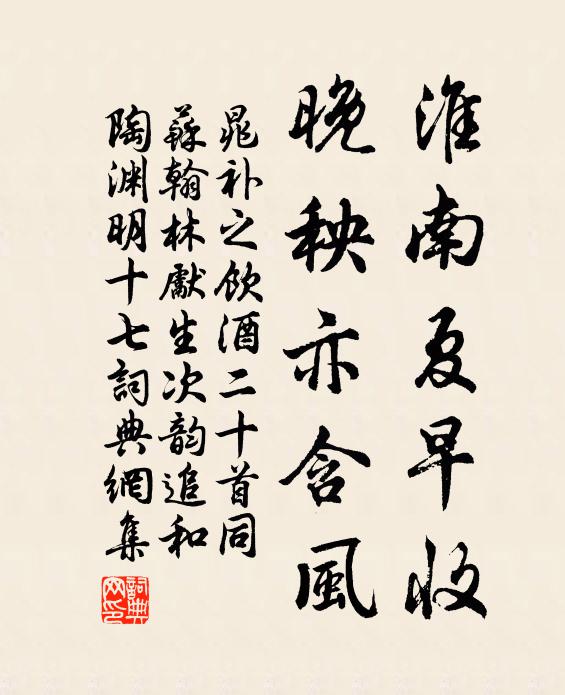 淮南夏早收
晚秧亦含風
晁补之飲酒二十首同
蘇翰林獻生次韵追和
陶淵明十七詞典網集
詞典网印